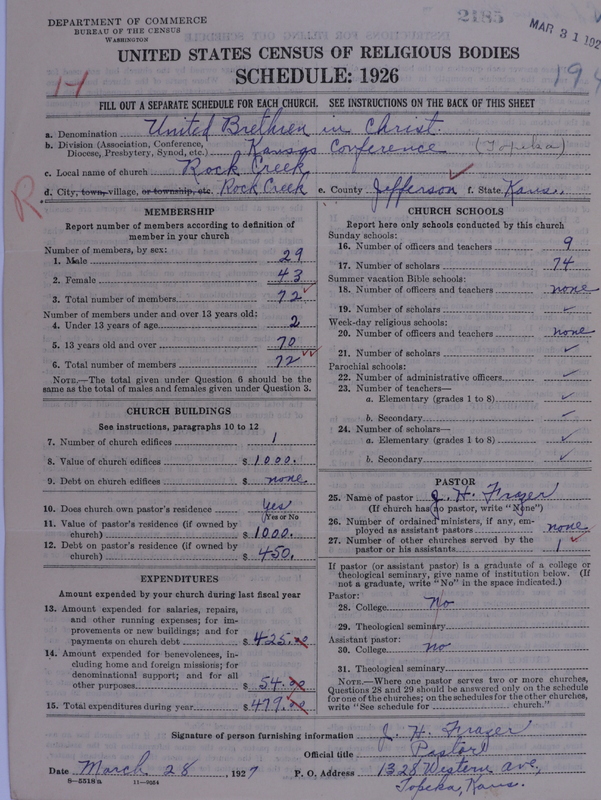 DEPARTMENT OF COMMERCE
BUREAU OF THE CENSUS
WASHINGTON
2185
MAR 31 192
UNITED STATES CENSUS OF RELIGIOUS BODIES
SCHEDULE: 1926
FILL OUT A SEPARATE SCHEDULE FOR EACH CHURCH. SEE INSTRUCTIONS ON THE BACK OF THIS SHEET
a. Denomination United Brethren in Christ.
b. Division (Association, Conference, Diocese, Presbytery, Synod, etc.) Kansas Conference (Topeka)
c. Local name of church Rock Creek
d. City, town, village, or township, etc. Rock Creek e. County Jefferson f. State Kans.
R
MEMBERSHIP
Report number of members according to definition of member in your church
Number of members, by sex:
1. Male 29
2. Female 43
3. Total number of members 72
Number of members under and over 13 years old:
4. Under 13 years of age 2
5. 13 years old and over 70
6. Total number of members 72
NOTE.—The total given under Question 6 should be the same as the total of males and females given under Question 3.
CHURCH BUILDINGS
See instructions, paragraphs 10 to 12
7. Number of church edifices 1
8. Value of church edifices $ 1000.
9. Debt on church edifices $ none
10. Does church own pastor's residence Yes
Yes or No
11. Value of pastor's residence (if owned by church) $ 1000.
12. Debt on pastor's residence (if owned by church) $ 450.
EXPENDITURES
Amount expended by your church during last fiscal year
13. Amount expended for salaries, repairs, and other running expenses; for improvements or new buildings; and for payments on church debt $ 425.00
14. Amount expended for benevolences, including home and foreign missions; for denominational support; and for all other purposes $ 54.00
15. Total expenditures during year $ 479.00
CHURCH SCHOOLS
Report here only schools conducted by this church
Sunday schools:
16. Number of officers and teachers 9
17. Number of scholars 74
Summer vacation Bible schools:
18. Number of officers and teachers none
19. Number of scholars
Week-day religious schools:
20. Number of officers and teachers none
21. Number of scholars
Parochial schools:
22. Number of administrative officers
23. Number of teachers—
a. Elementary (grades 1 to 8)
b. Secondary
24. Number of scholars—
a. Elementary (grades 1 to 8)
b. Secondary
PASTOR
25. Name of pastor J. H. Frazer
(If church has no pastor, write "None")
26. Number of ordained ministers, if any, employed as assistant pastors none
27. Number of other churches served by the pastor or his assistants 1
If pastor (or assistant pastor) is a graduate of a college or theological seminary, give name of institution below. (If not a graduate, write "No" in the space indicated.)
Pastor:
28. College No
29. Theological seminary
Assistant pastor:
30. College no
31. Theological seminary
NOTE.—Where one pastor serves two or more churches, Questions 28 and 29 should be answered only on the schedule for one of the churches; on the schedules for the other churches, write "See schedule for church."
Signature of person furnishing information J. H. Frazer
Official title Pastor
Date March 28, 1927 P. O. Address 1328 Western ave,
Topeka, Kans.
8-5518a 11-9564